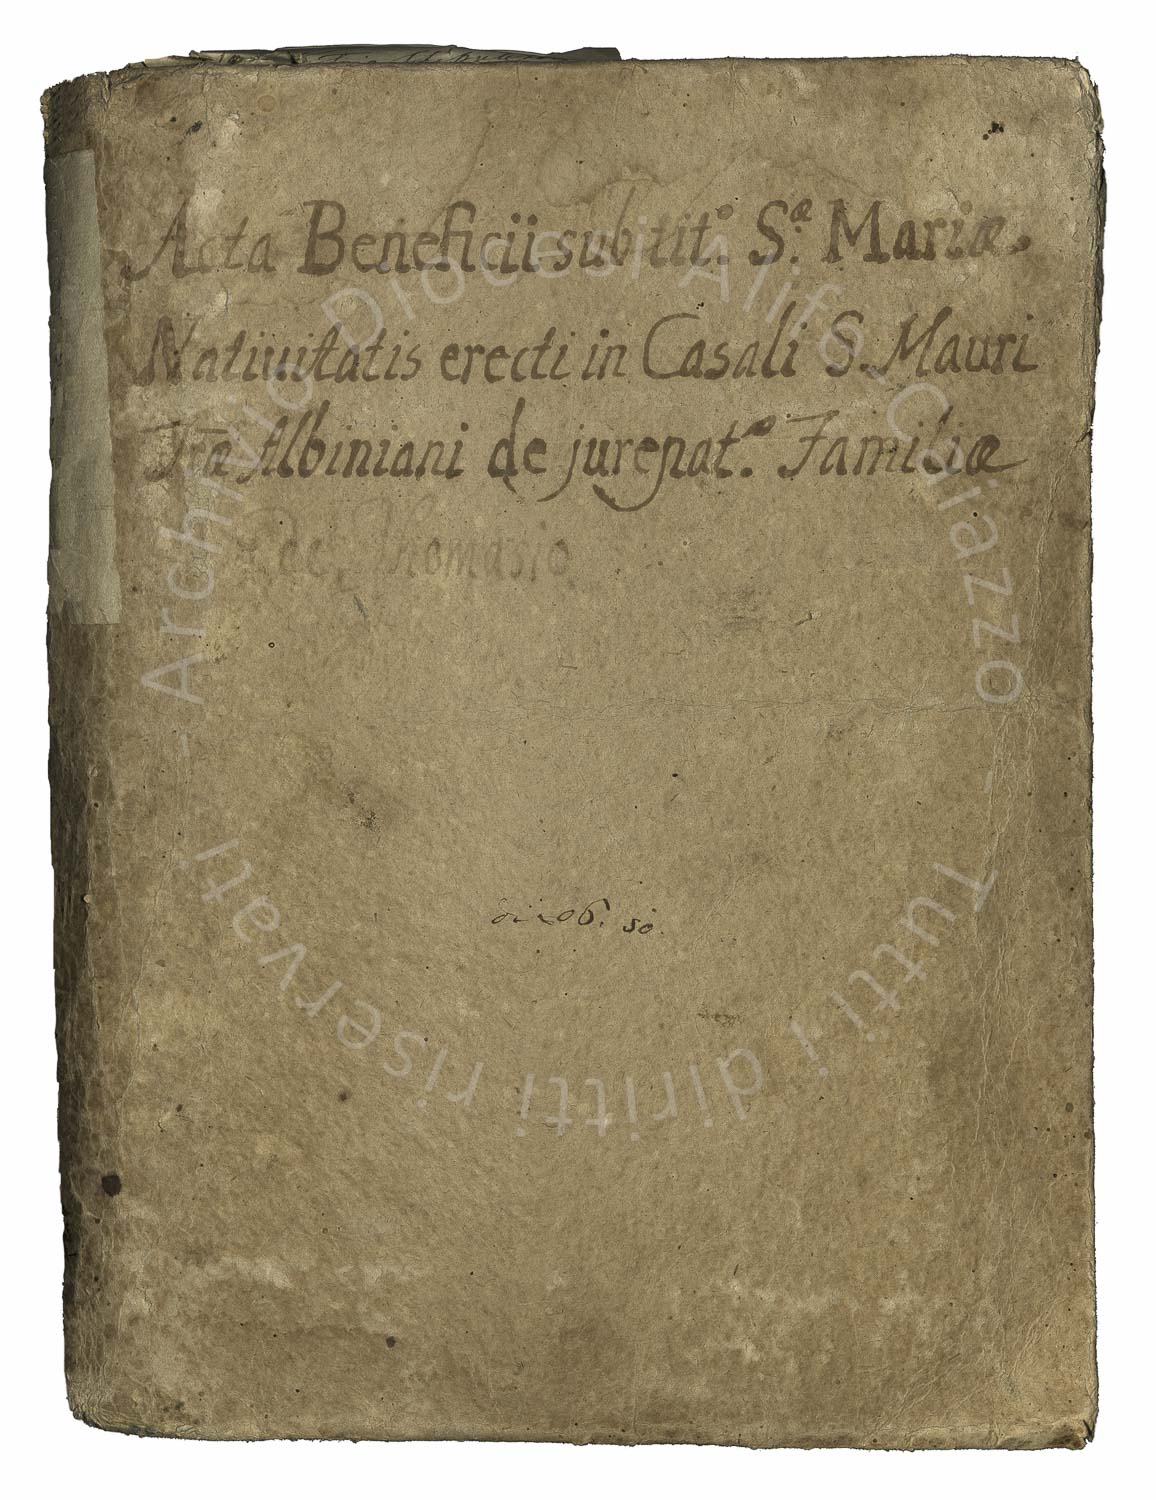 Acta Beneficii sub tit.º S.ᵃ Mariæ
Natiuitatis erecti in Casali S. Mauri
Træ Albiniani de jure pat.º Familiæ
de Thomasio
so.
- Archivio Diocesi Alife-Caiazzo - Tutti i diritti riservati